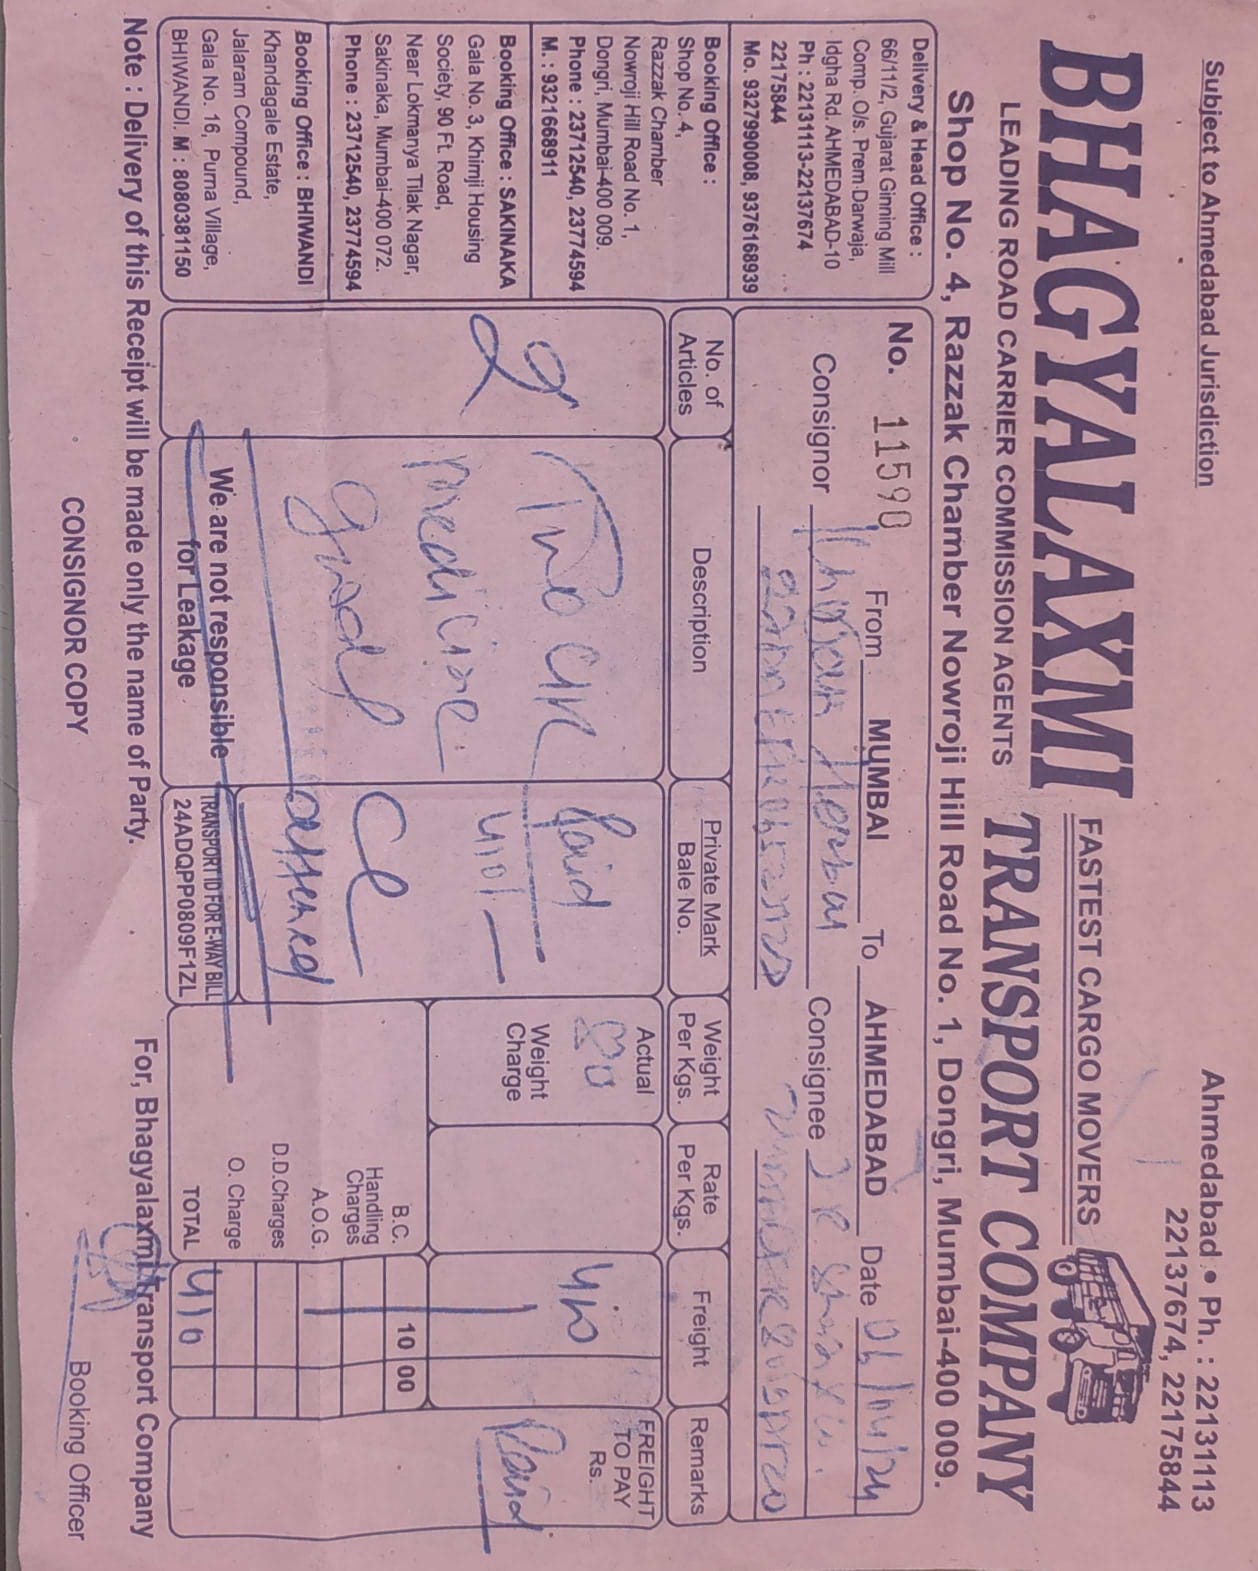 Subject to Ahmedabad Jurisdiction
Ahmedabad • Ph. : 22131113
22137674, 22175844
BHAGYALAXMI
FASTEST CARGO MOVERS
TRANSPORT COMPANY
LEADING ROAD CARRIER COMMISSION AGENTS
Shop No. 4, Razzak Chamber Nowroji Hill Road No. 1, Dongri, Mumbai-400 009.
Delivery & Head Office :
66/11/2, Gujarat Ginning Mill
Comp. O/s. Prem Darwaja,
Idgha Rd. AHMEDABAD-10
Ph : 22131113-22137674
22175844
Mo. 9327990008, 9376168939
Booking Office :
Shop No. 4,
Razzak Chamber
Nowroji Hill Road No. 1,
Dongri, Mumbai-400 009.
Phone : 23712540, 23774594
M. : 9321668911
Booking Office : SAKINAKA
Gala No. 3, Khimji Housing
Society, 90 Ft. Road,
Near Lokmanya Tilak Nagar,
Sakinaka, Mumbai-400 072.
Phone : 23712540, 23774594
Booking Office : BHIWANDI
Khandagale Estate,
Jalaram Compound,
Gala No. 16, Purna Village,
BHIWANDI. M : 8080381150
No. 11590 From MUMBAI To AHMEDABAD Date
Consignor Consignee
No. of Articles
Description
Private Mark
Bale No.
Weight Per Kgs.
Rate Per Kgs.
Freight
Remarks
2
medicine
good
Paid
410/-
Actual
80
Weight Charge
410
FREIGHT TO PAY Rs.
Paid
B.C. 10 00
Handling Charges
A.O.G.
D.D.Charges
O. Charge
TOTAL 410
We are not responsible
for Leakage
TRANSPORT ID FOR E-WAY BILL
24ADQPP0809F1ZL
Note : Delivery of this Receipt will be made only the name of Party.
For, Bhagyalaxmi Transport Company
CONSIGNOR COPY
Booking Officer